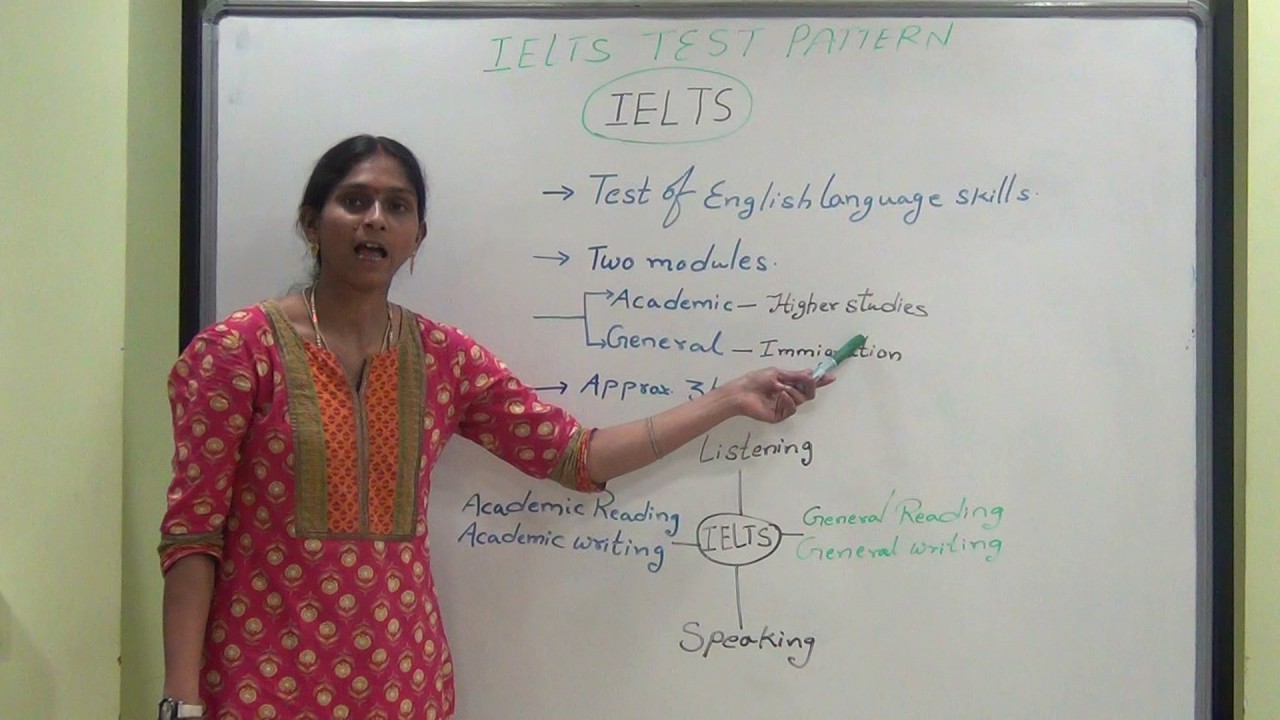 IELTS TEST PATTERN
IELTS
→ Test of English language skills.
→ Two modules.
Academic – Higher studies
General –
→ Approx.
Listening
Academic Reading
Academic writing
IELTS
General Reading
General writing
Speaking